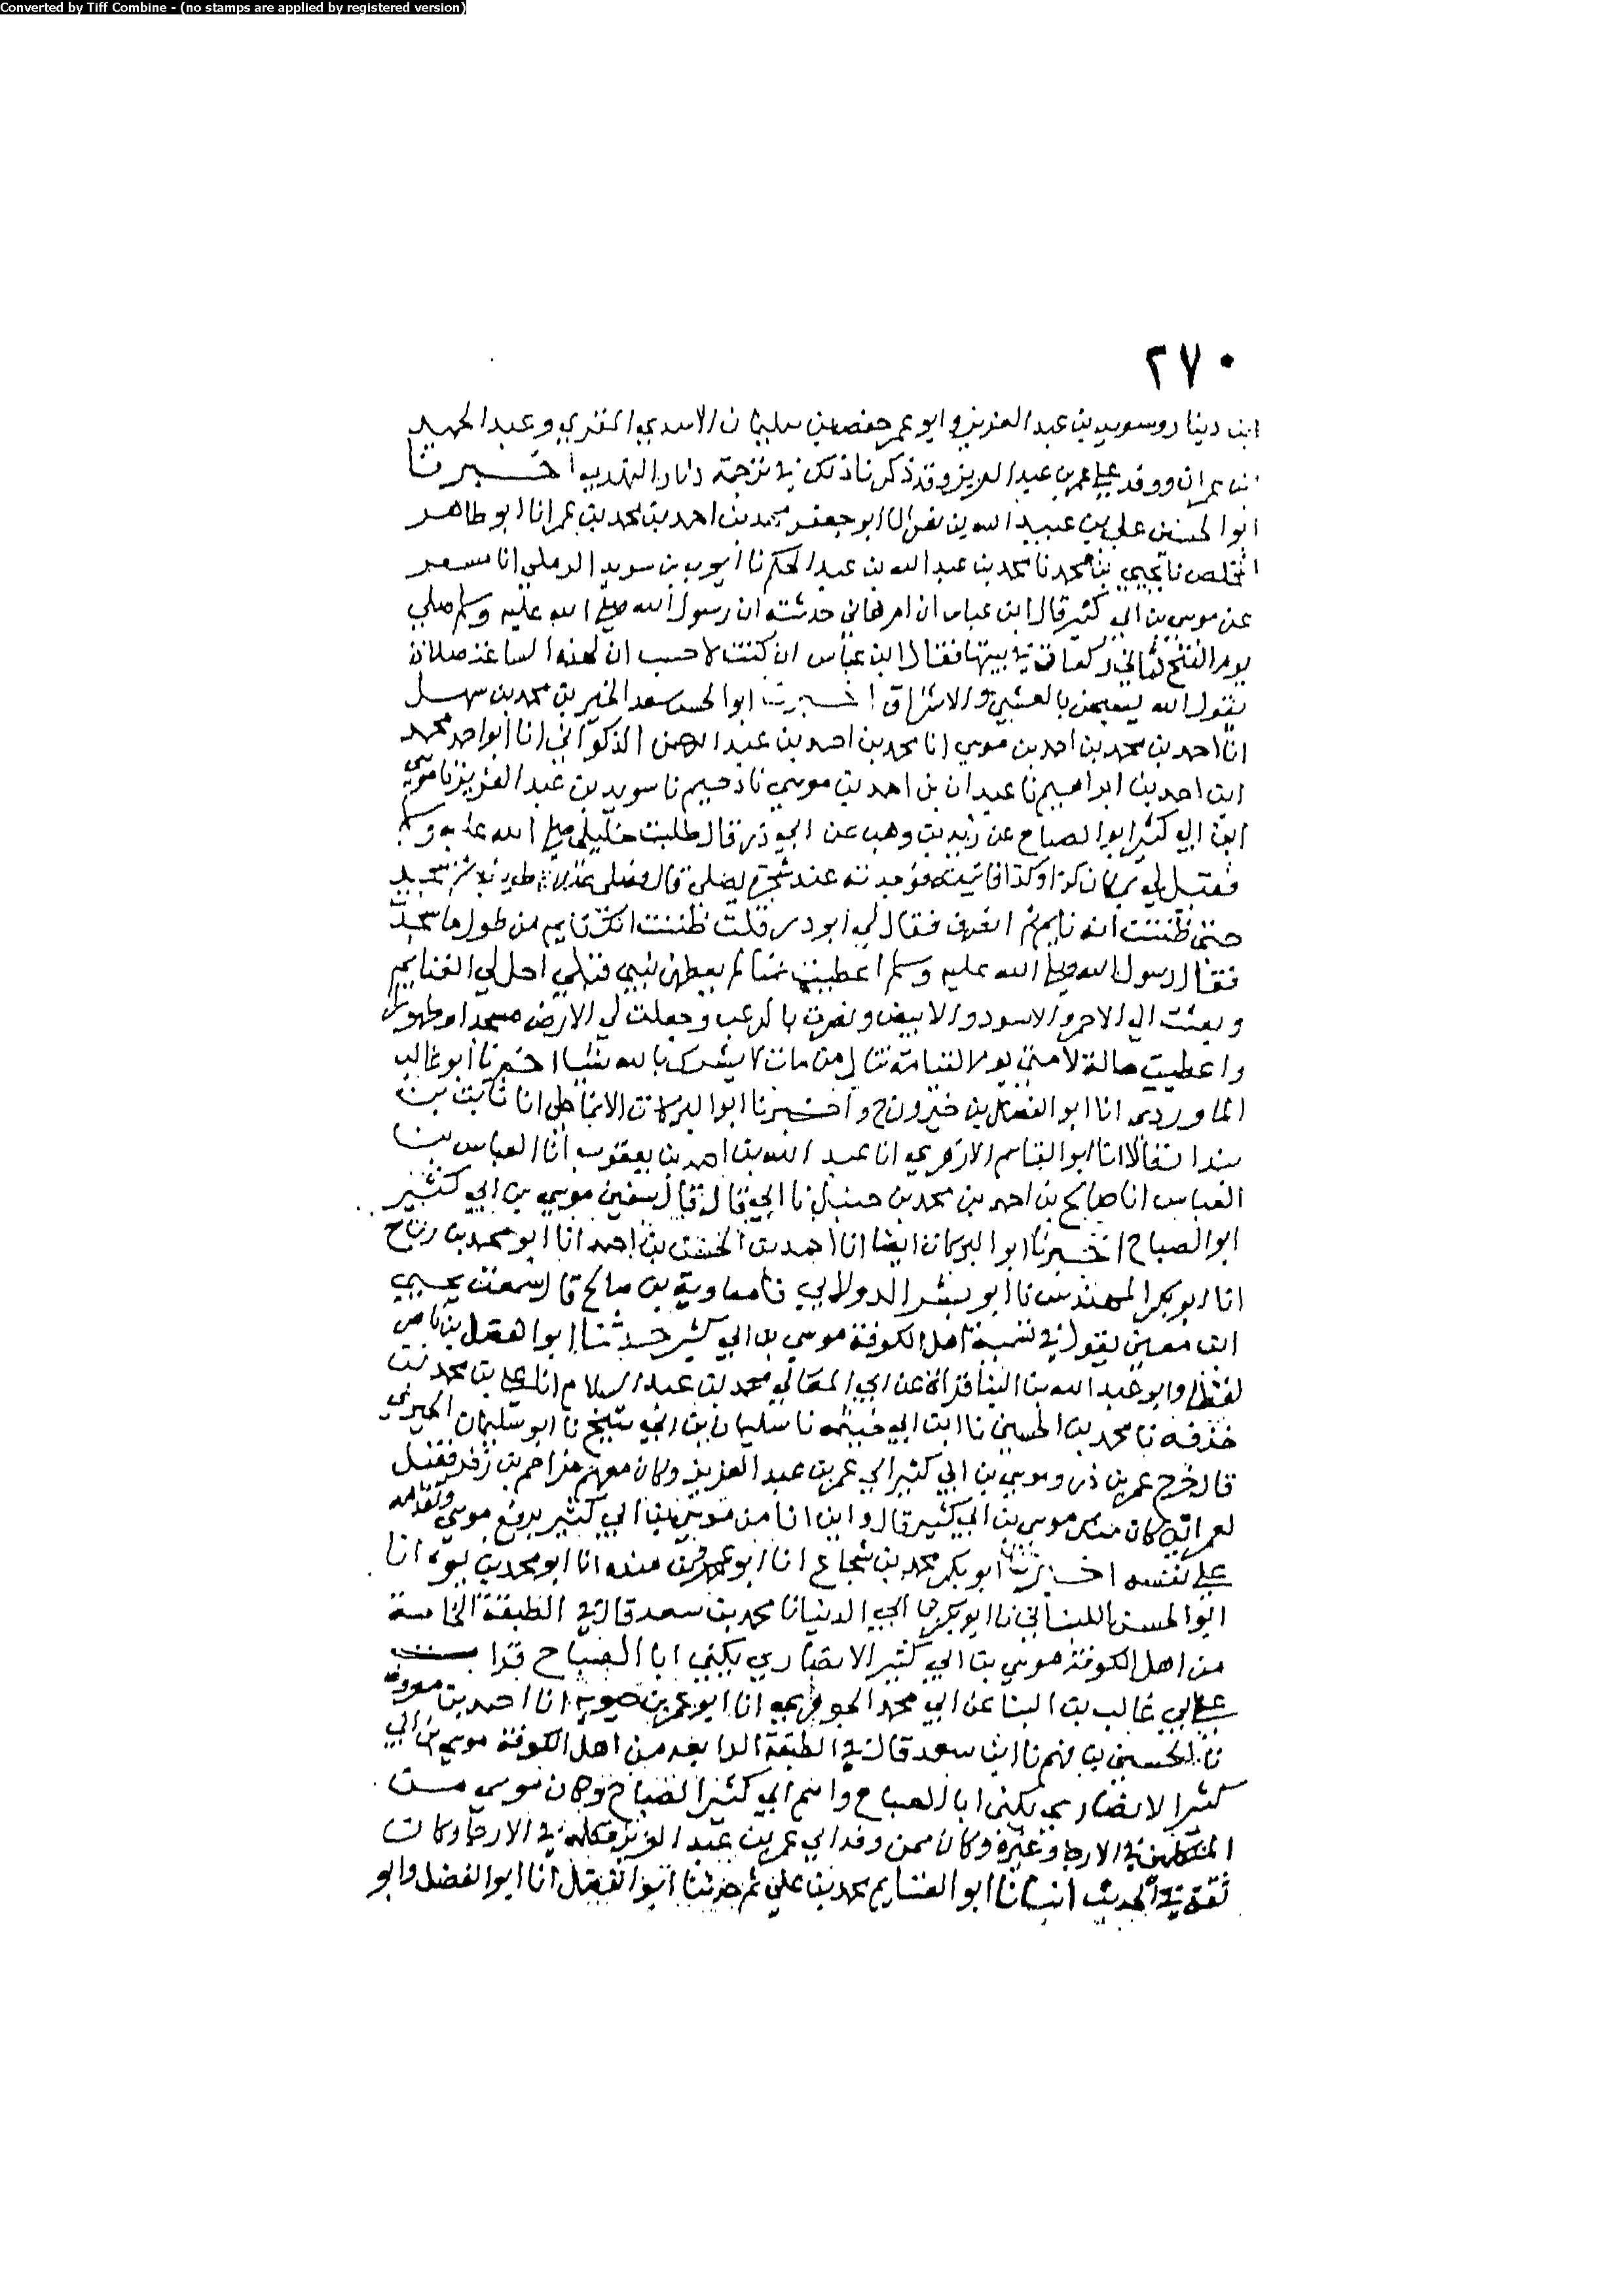 Converted by Tiff Combine - (no stamps are applied by registered version)
٢٧٠
ابن دينار وسويد بن عبد العزيز وابو عمر حفص بن سليمان الاسدي المقري وعبد الحميد
بن عمران ووفد على عمر بن عبد العزيز وقد ذكرنا ذلك في ترجمة دثار النهدي اخبرنا
ابو الحسن علي بن عبيد الله بن نصر انا ابو جعفر محمد بن احمد بن محمد بن عمر انا ابو طاهر
المخلص نا يحيى بن محمد نا محمد بن عبد الله بن عبد الحكم نا ايوب بن سويد الرملي انا مسعر
عن موسى بن ابي كثير قال ابن عباس ان ام هاني حدثته ان رسول الله صلى الله عليه وسلم صلى
يوم الفتح ثماني ركعات في بيتها فقال ابن عباس ان كنت لاحسب ان لهذه الساعة صلاة
يقول الله يسبحن بالعشي والاشراق اخبرنا ابو الحسن سعد الخير بن محمد بن سهل
انا احمد بن محمد بن احمد بن موسى انا محمد بن احمد بن عبد الرحمن الذكواني انا ابو احمد محمد
ابن احمد بن ابراهيم نا عبدان بن احمد بن موسى نا دحيم نا سويد بن عبد العزيز نا موسى
ابن ابي كثير ابو الصباح عن زيد بن وهب عن ابي ذر قال طلبت خليلي صلى الله عليه وسلم
فقيل لي بمكان كذا وكذا فاتيته فوجدته عند شجرة يصلي قال فصلى
حتى ظننت انه نايم ثم انصرف فقال لي ابو ذر قلت ظننت انك نايم من طول ما سجدت
فقال رسول الله صلى الله عليه وسلم اعطيت خمسا لم يعطهن نبي قبلي احل لي الغنايم
وبعثت الى الاحمر والاسود والابيض ونصرت بالرعب وجعلت لي الارض مسجدا وطهورا
واعطيت صالة لامتي يوم القيامة تنال من مات لا يشرك بالله شيئا اخبرنا ابو غالب
الماوردي انا ابو الفضل بن خيرون ح واخبرنا ابو البركات الانماطي انا ثابت بن
بندار قالا انا ابو القاسم الازهري انا عبد الله بن احمد بن يعقوب انا العباس بن
العباس انا صالح بن احمد بن محمد بن حنبل نا ابي قال قال سفين موسى بن ابي كثير
ابو الصباح اخبرنا ابو البركات ايضا انا احمد بن الحسن بن احمد انا ابو محمد بن رباح
انا ابو بكر المهندس نا ابو بشر الدولابي نا معاوية بن صالح قال سمعت يحيى
ابن معين يقول في تسمية اهل الكوفة موسى بن ابي كثير حدثنا ابو الفضل بن ناصر
لفظا وابو عبد الله بن البنا قراة عن ابي المعالي محمد بن عبد السلام انا علي بن محمد بن
خزفة نا محمد بن الحسين نا ابن ابي خيثمة نا سليمان بن ابي شيخ نا ابو سليمان الحميري
قال خرج عمر بن ذر وموسى بن ابي كثير الى عمر بن عبد العزيز وكان معهم مزاحم بن زفر فقيل
لعمر انه كان مثل موسى بن ابي كثير قال واين انا من موسى بن ابي كثير يرفع موسى ويقدمه
على نفسه اخبرنا ابو بكر محمد بن شجاع انا ابو عمرو بن منده انا ابو محمد بن يوه انا
ابو الحسن اللبناني نا ابو بكر بن ابي الدنيا نا محمد بن سعد قال في الطبقة الخامسة
من اهل الكوفة موسى بن ابي كثير الانصاري يكنى ابا الصباح قرات
على ابي غالب بن البنا عن ابي محمد الجوهري انا ابو عمر بن حيويه انا احمد بن معروف
نا الحسين بن فهم نا ابن سعد قال في الطبقة الرابعة من اهل الكوفة موسى بن ابي
كثير الانصاري يكنى ابا الصباح واسم ابي كثير الصباح وكان موسى من
المتكلمين في الارجا وغيره وكان ممن وفد الى عمر بن عبد العزيز فكلمه في الارجا وكان
ثقة في الحديث انبانا ابو الغنايم محمد بن علي ثم حدثنا ابو الفضل انا ابو الفضل وابو